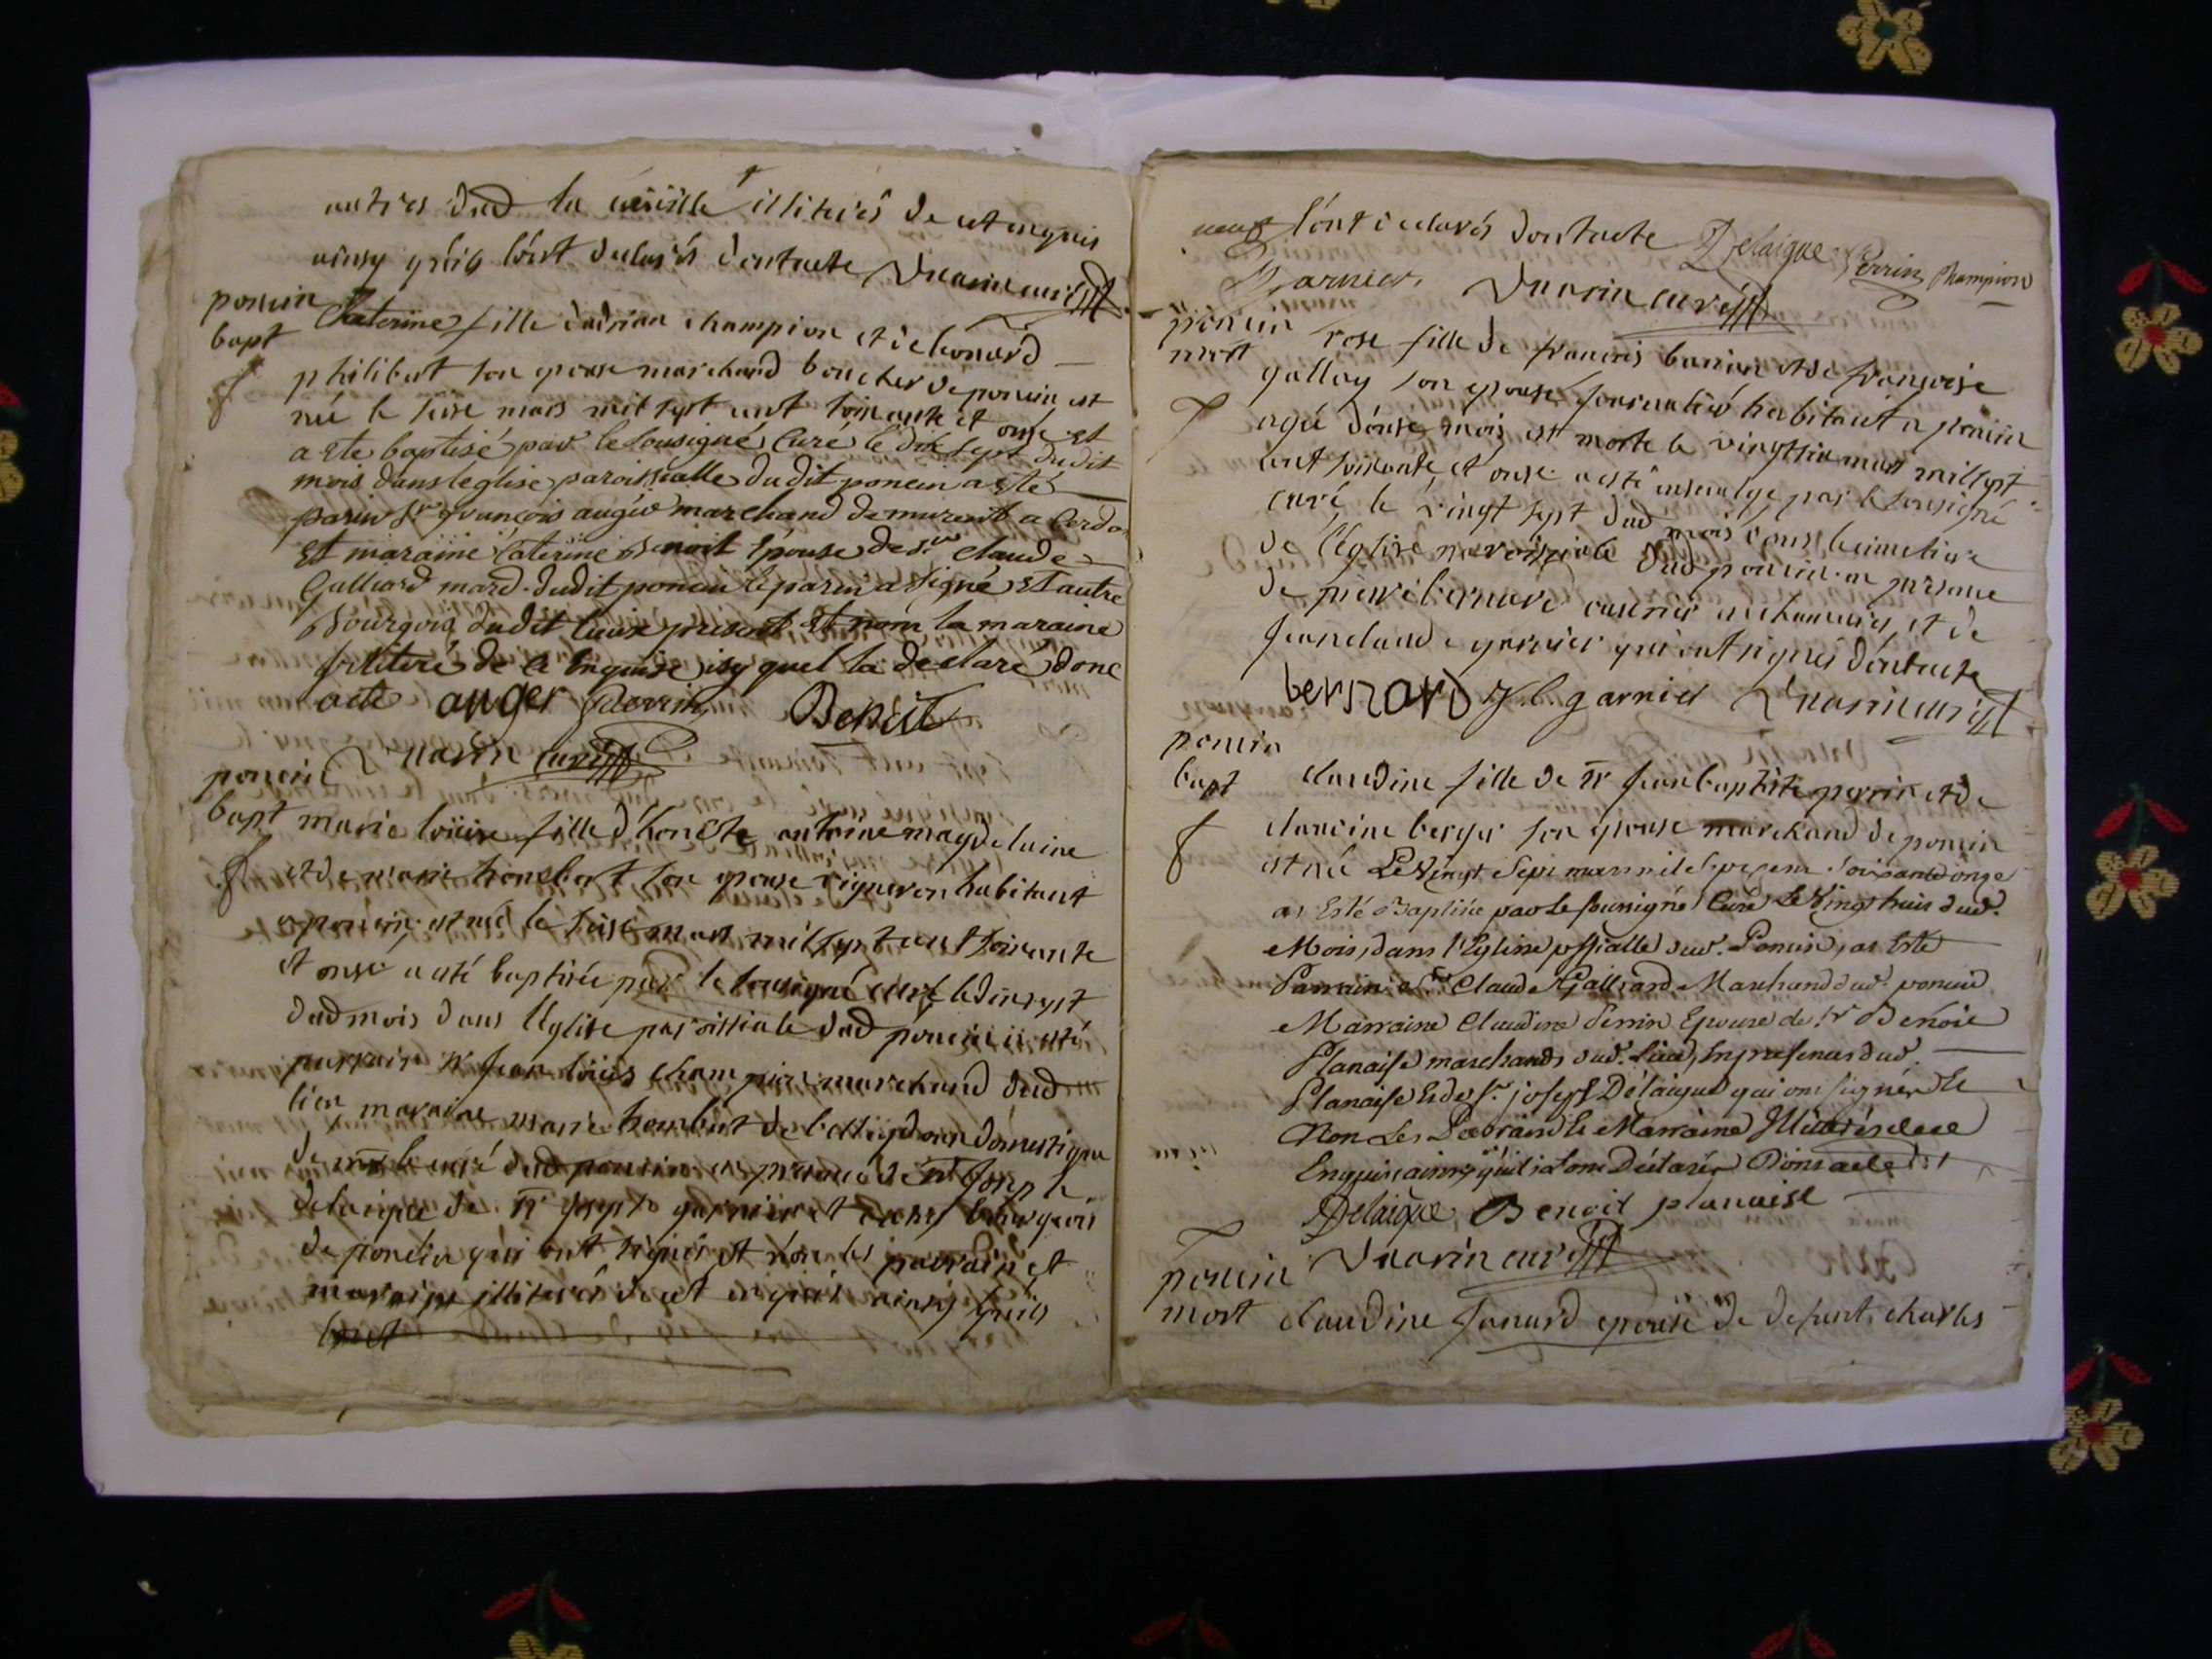 autres dud la illiterés de cet enquis
ainsy quils lont declarés dontacte curé
poncin
bapt
Caterine fille dadrian champion et de leonard
philibert son epouse marchand boucher de poncin est
née le seise mars mil sept cent soixante et onse et
a ete baptisé par le sousigné Curé le dix sept dudit
mois dans leglise paroissialle dudit poncin a eté
parin Sr françois augér marchand demurent a Cerdo
Et maraine Caterine Benoit Epouse de Sr claude
Galliard mard. dudit poncin le parin a signé Et autre
Bourgois dudit lieux present Et nom la maraine
illiteré de ce Enquise isy quel la declaré donc
acte auger perrin Benoit
curé
poncin
bapt marie loüise fille d'honéte antoine magdelaine
et de marie humbert son epouse vigneron habitant
a poncin, est née le seise mars mil sept cent soixante
et onse a eté baptisée par le sousigné curé le dix sept
dud mois dans l'églize paroissiale dud poncin a esté
parrain Sr Jean loüis champion marchand dud
lieu maraine marie humbert de domestique
de mr le curé dud poncin en presence de Sr Joseph
delaigue de Sr joseph garnier et bourgeois
de poncin qui ont signés et non les parrain et
maraine illiterés de cet enquis ainsy quils
lont
lont declarés dontacte Delaigue Perrin Champion
Garnier. curé
poncin
mort
rose fille de francois et de françoise
gallay son epouse habitant a poncin
agée donse mois est morte le vingtsix mars mil sept
cent soixante et onse a esté par le sousigné
curé le vingt sept dud mois dans le cimetiere
de l'église paroissiale dud poncin en presence
de pierre bernard et de
jean claude garnier qui ont signés dontacte
bernard J. C. garnier curé
poncin
bapt
claudine fille de Sr Jean baptiste perrin et de
claudine berger son epouse marchand de poncin
est née Le Vingt Sept mars mil Sept cent Soixante onze
as Esté Baptisée par Le sousigné Curé Le Vingt huis dud.
Mois, dans l'Eglise pssialle dud. Poncin, as Esté
Parrain Sr Claude Galliard Marchand dud. poncin
Marraine Claudine Perrin Epouse de Sr Benoit
Planaise marchands dud. Lieu, En presences dud.
Planaise Et de Sr joseph Delaigue qui ont signéz Et
Non Les Parrain Et Marraine Illiterés de ce
Enquis ainsy quil iatont Déclarés Dont acte
Delaigue Benoit planaise
curé
poncin
mort claudine Janard epouse de defunt charles